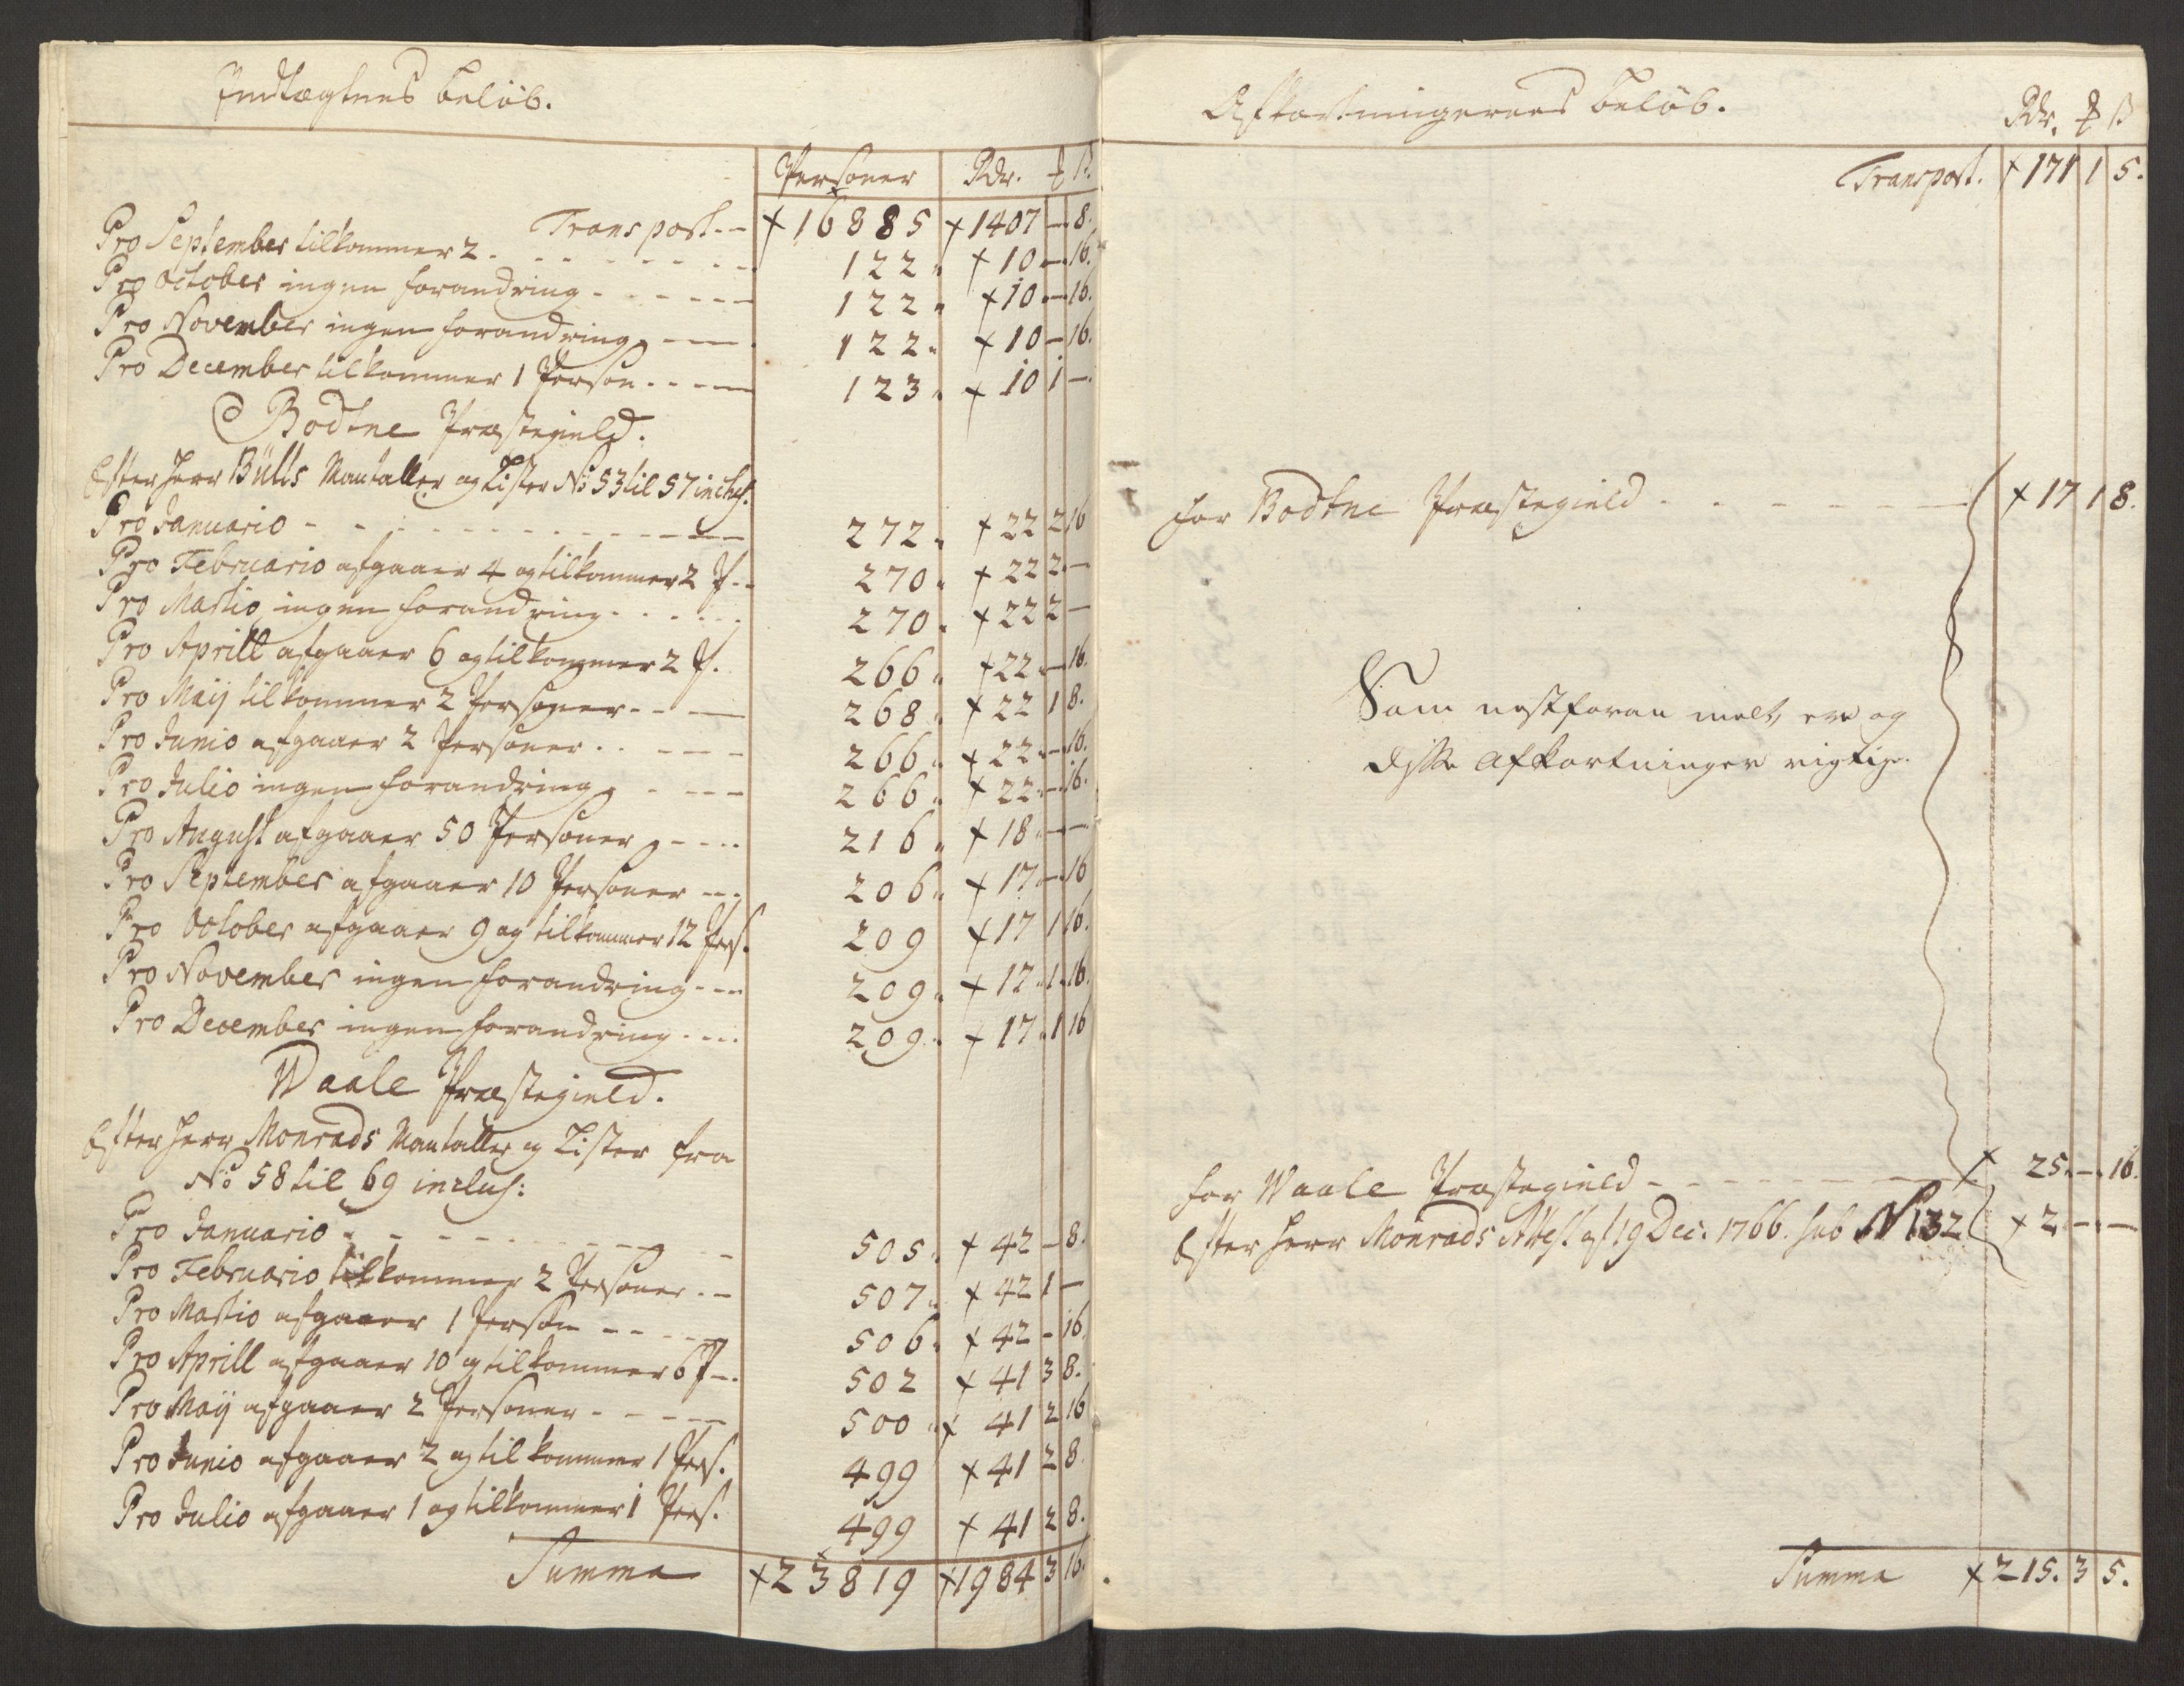 Indtægtens beløb.
Personer Rdr. ß
Transport -- 16885 1407 — 8.
Pro September tilkommer 2 . 122 10 — 16.
Pro October ingen forandring 122 10 — 16.
Pro November ingen forandring 122 10 — 16.
Pro December tilkommer 1 Person 123 10 1 —
Bodtne Præstegield.
Efter Herr Bülls Mantaller og Lister No 53 til 57 inclus.
Pro Januario 272 22 2 16
Pro Februario afgaaer 4 og tilkommer 2 P. 270 22 2 —
Pro Martio ingen forandring 270 22 2 —
Pro Aprill afgaaer 6 og tilkommer 2 P. 266 22 — 16.
Pro Maij tilkommer 2 Personer 268 22 1 8.
Pro Junio afgaaer 2 Personer 266 22 — 16.
Pro Julio ingen forandring 266 22 — 16.
Pro August afgaaer 50 Personer 216 18 — —
Pro September afgaaer 10 Personer 206 17 — 16
Pro October afgaaer 9 og tilkommer 12 Pers. 209 17 1 16.
Pro November ingen forandring 209 17 1 16.
Pro December ingen forandring 209 17 1 16
Waale Præstegield.
Efter Herr Monrads Mantaller og Lister fra
No 58 til 69 inclus:
Pro Januario 505 42 — 8.
Pro Februario tilkommer 2 Personer 507 42 1 —
Pro Martio afgaaer 1 Person 506 42 — 16.
Pro Aprill afgaaer 10 og tilkommer 6 P. 502 41 3 8.
Pro Maij afgaaer 2 Personer 500 41 2 16
Pro Junio afgaaer 2 og tilkommer 1 Pers. 499 41 2 8.
Pro Julio afgaaer 1 og tilkommer 1 Pers. 499 41 2 8.
Summa 23819 1984 3 16.
Afkortningernes beløb.
Rdr. ß
Transport. 171 1 5.
for Bodtne Præstegield 17 1 8.
Som nestforan melt, ere og
disse Afkortninger rigtige.
for Waale Præstegield 25. — 16.
Efter Herr Monrads Attest af 19 Dec. 1766. sub No 132 2 — —
Summa 215. 3 5.